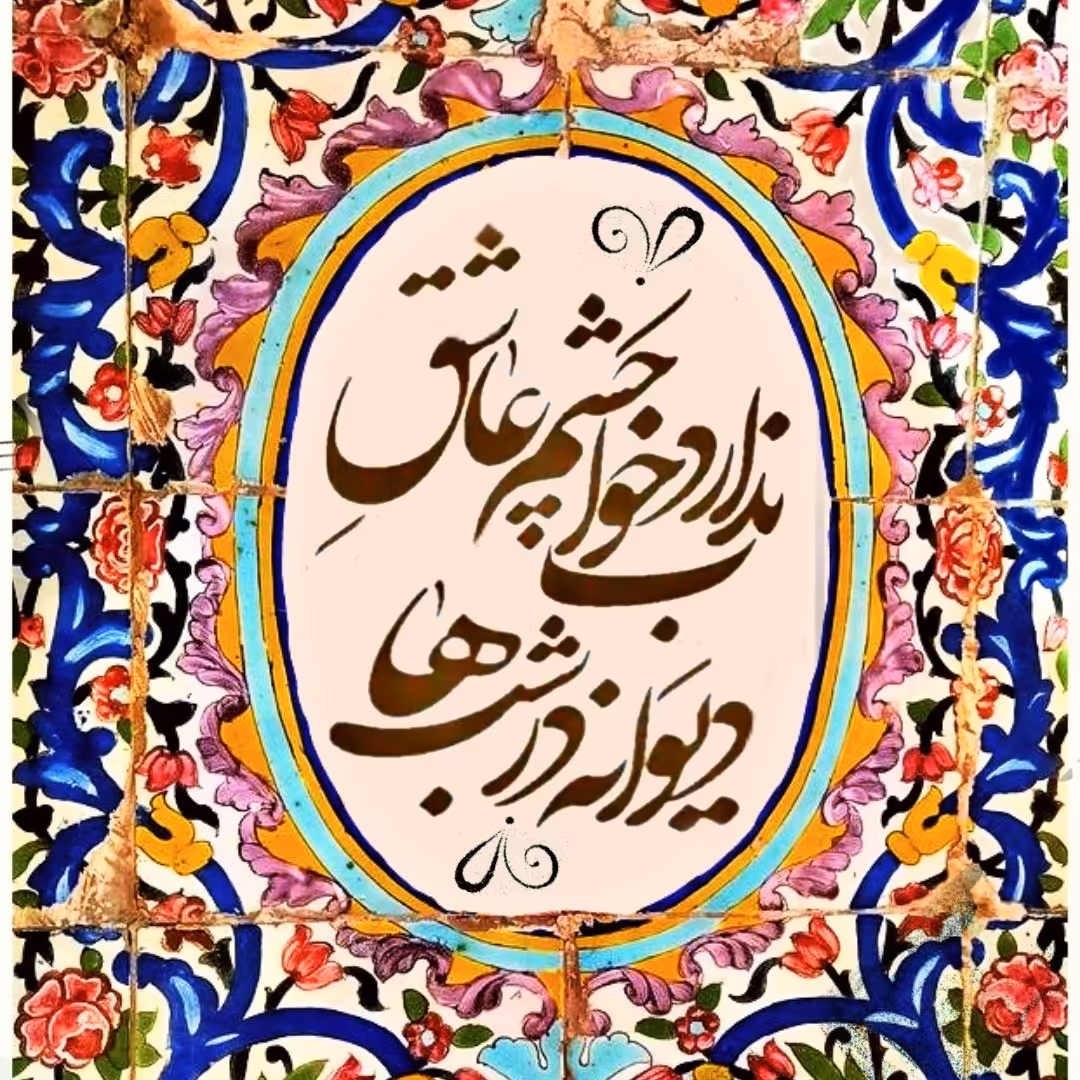 ندارد خواب چشم عاشق
دیوانه در شب‌ها